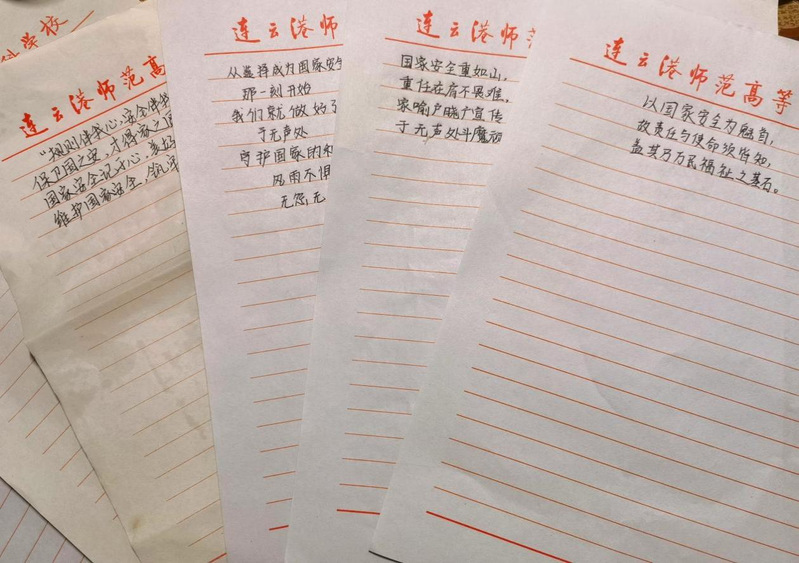 学校
连云港师范高
"规则伴我心,安全伴我
保卫国之安,才得家之
国家安全记于心,
维护国家安全,
连云港师
从选择成为国家安
那一刻开始
我们就做好了
于无声处
守护国家的
风雨不惧
无怨无
连云港师范
国家安全重如山,
重任在肩不畏难。
家喻户晓广宣传
于无声处斗魔
连云港师范高等
以国家安全为魁首,
故责任与使命须皆知,
盖其乃万民福祉之基石。